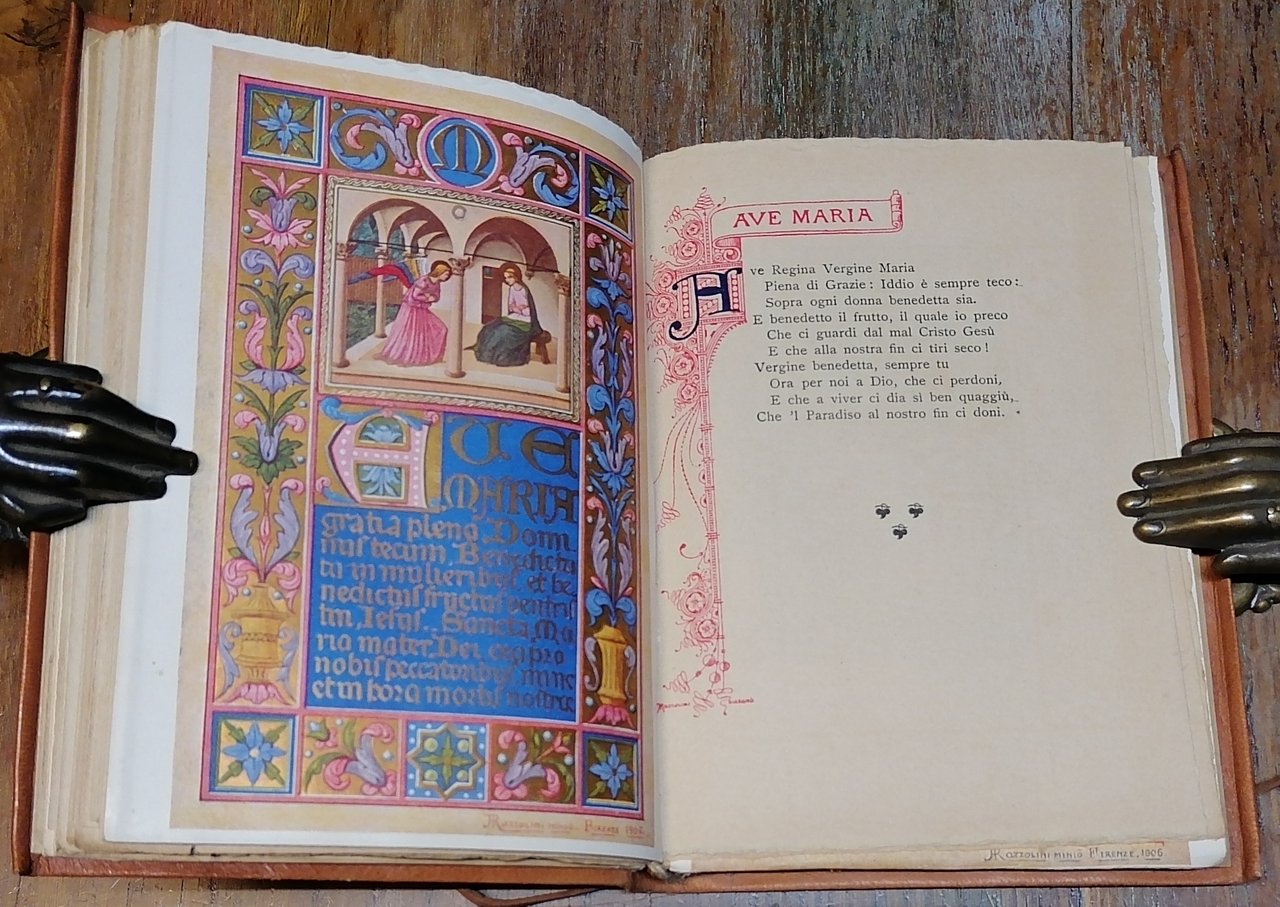 M
AVE
MARIA
gratia plena, Domi
nus tecum, Benedicta
tu in mulieribus, et be
nedictus fructus ventris
tui, Iesus. Sancta Ma
ria mater Dei ora pro
nobis peccatoribus, nunc
et in hora mortis nostræ
FIRENZE
AVE MARIA
Ave Regina Vergine Maria
Piena di Grazie: Iddio è sempre teco:
Sopra ogni donna benedetta sia.
E benedetto il frutto, il quale io preco
Che ci guardi dal mal Cristo Gesù
E che alla nostra fin ci tiri seco!
Vergine benedetta, sempre tu
Ora per noi a Dio, che ci perdoni,
E che a viver ci dia sì ben quaggiù,
Che 'l Paradiso al nostro fin ci doni.
MINIÒ FIRENZE, 1906